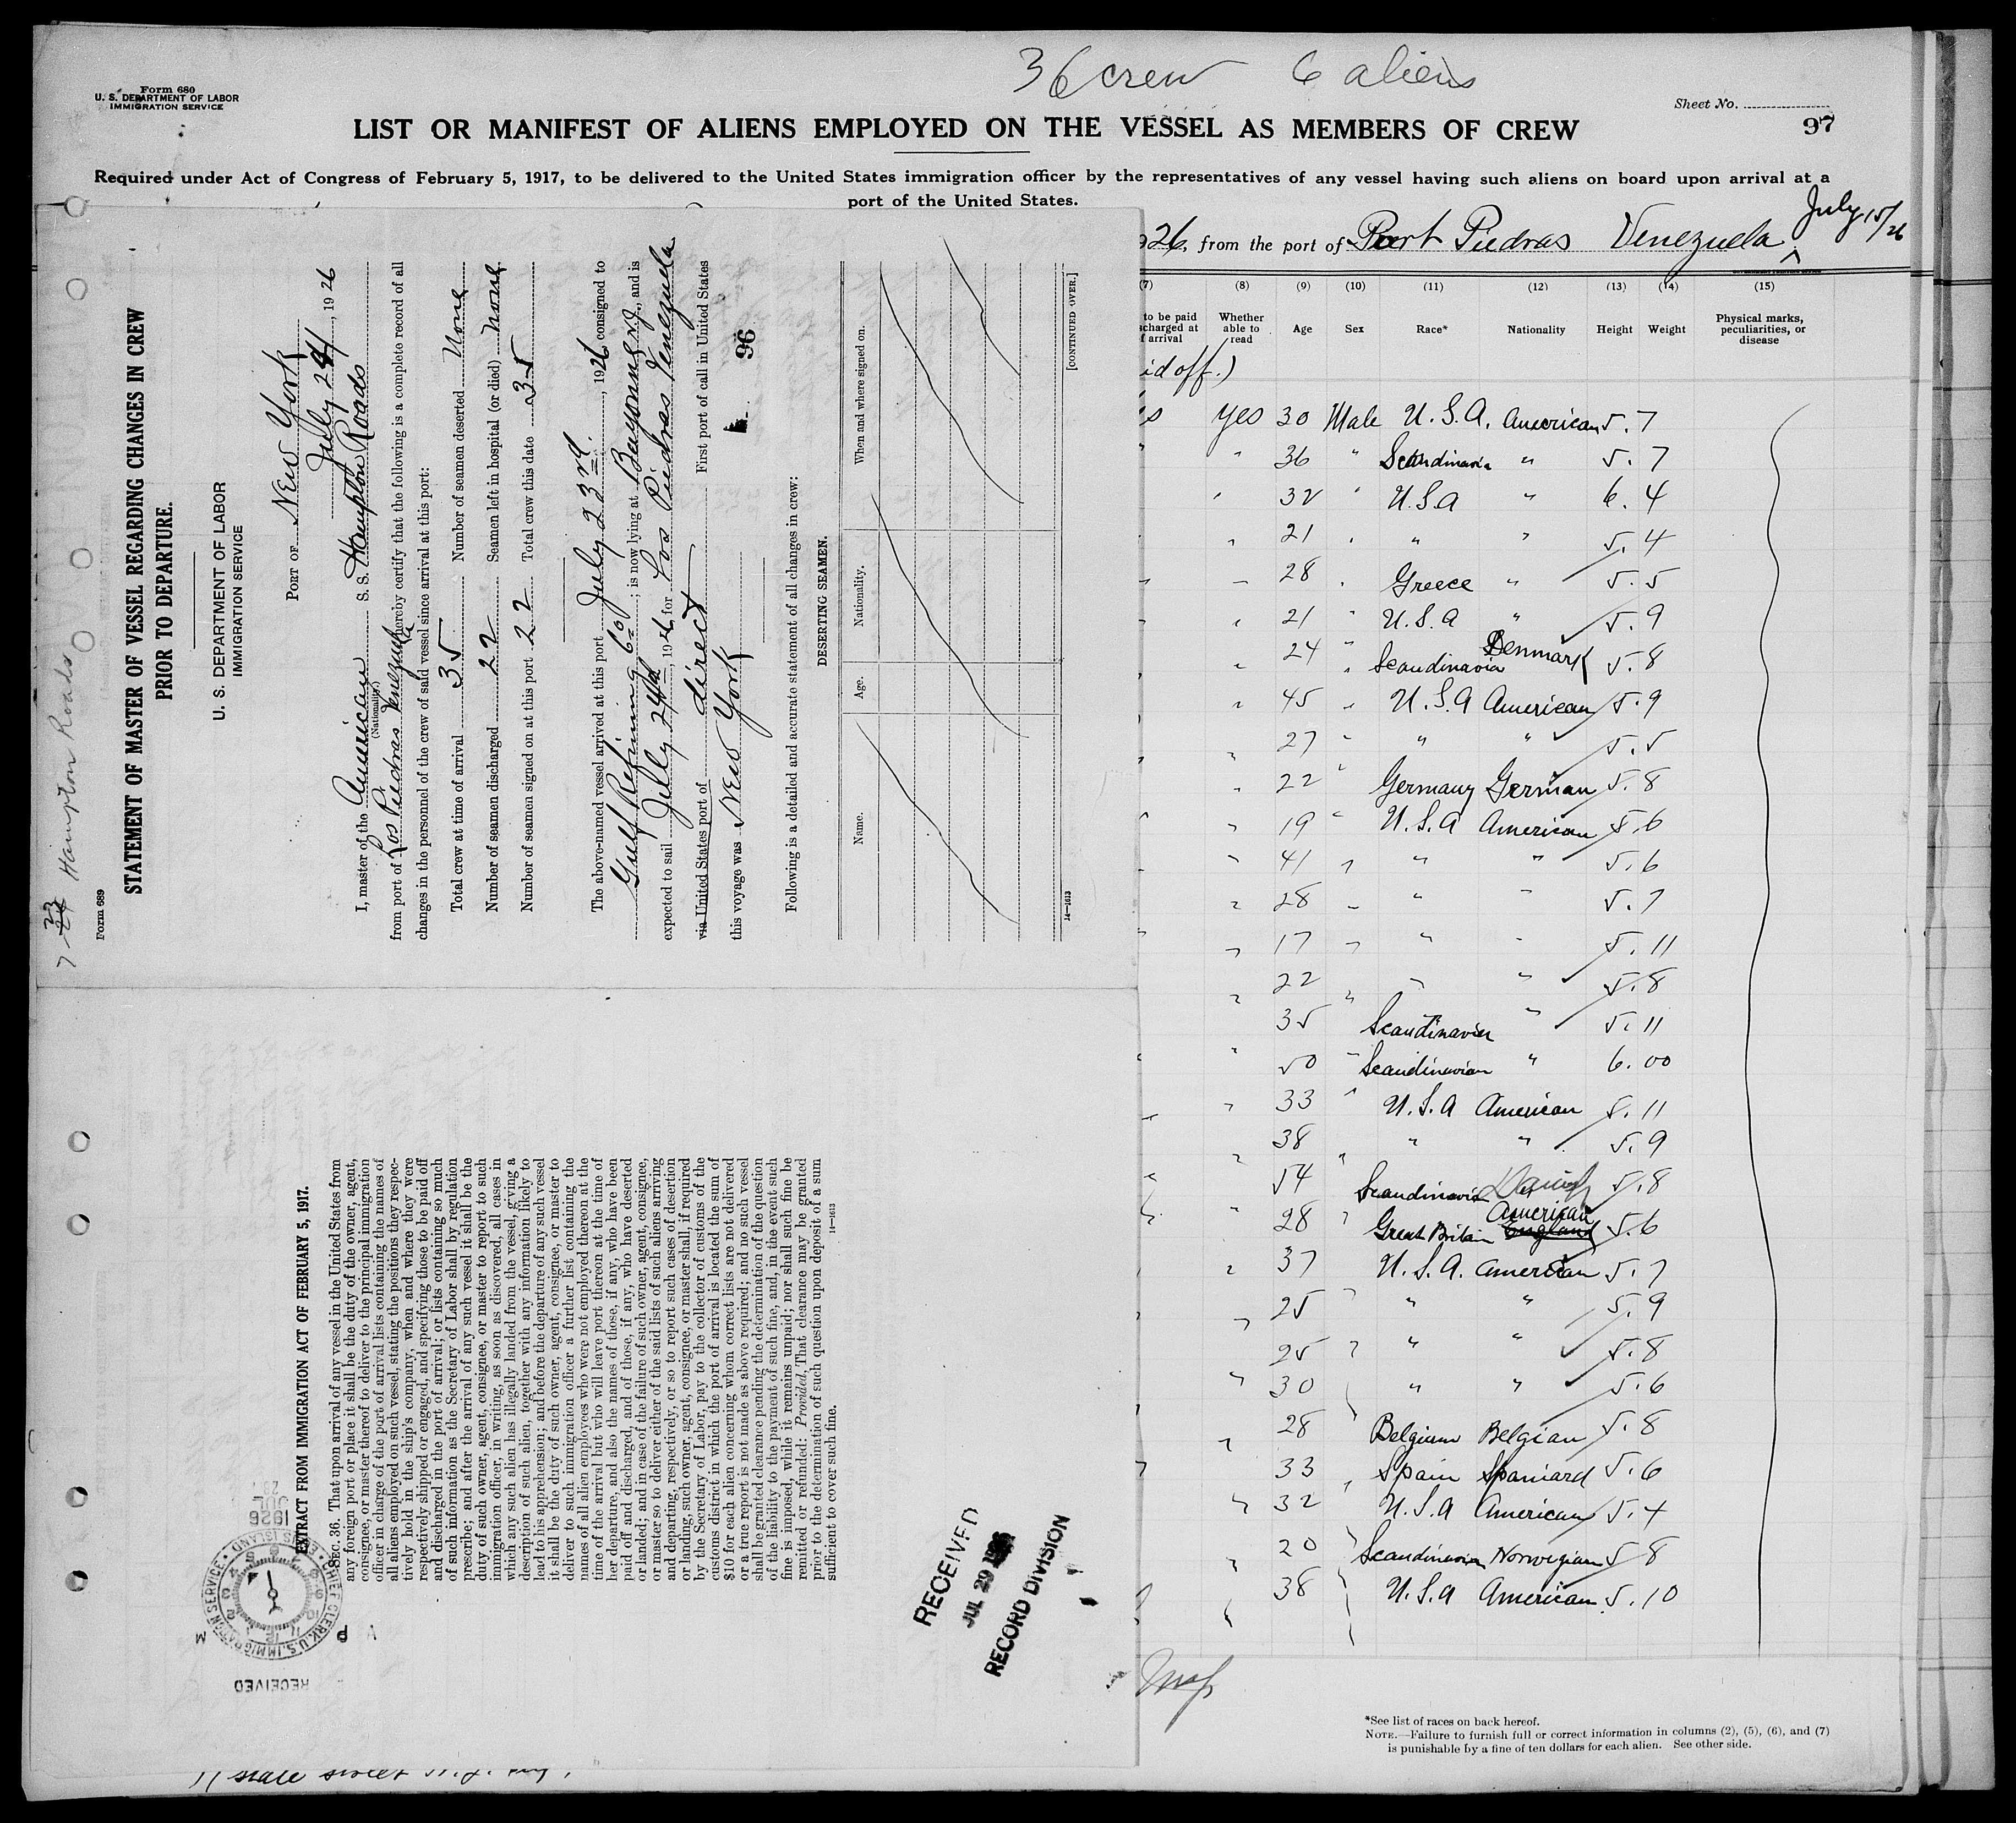 36 crew 6 aliens
Form 680
U. S. DEPARTMENT OF LABOR
IMMIGRATION SERVICE
Sheet No.
97
LIST OR MANIFEST OF ALIENS EMPLOYED ON THE VESSEL AS MEMBERS OF CREW
Required under Act of Congress of February 5, 1917, to be delivered to the United States immigration officer by the representatives of any vessel having such aliens on board upon arrival at a
port of the United States.
26, from the port of Port Piedras Venezuela July 15/26
(7) (8) (9) (10) (11) (12) (13) (14) (15)
to be paid Whether Age Sex Race* Nationality Height Weight Physical marks,
charged at able to peculiarities, or
arrival read disease
id off.)
s yes 30 Male U.S.A. American 5.7
" " 36 " Scandinavia " 5.7
" 32 " U.S.A " 6.4
" 21 " " " 5.4
" 28 " Greece " 5.5
" 21 " U.S.A " 5.9
" 24 " Scandinavia Denmark 5.8
" 45 " U.S.A American 5.9
" 27 " " " 5.5
" 22 " Germany German 5.8
" 19 " U.S.A American 5.6
" 41 " " " 5.6
" 28 " " " 5.7
" 17 " " " 5.11
" 22 " " " 5.8
35 Scandinavian " 5.11
" 50 " Scandinavian " 6.00
" 33 " U.S.A American 5.11
" 38 " " " 5.9
" 54 Scandinavia Danish 5.8
" 28 " Great Britain England American 5.6
" 37 U.S.A. American 5.7
" 25 " " " 5.9
25 " " " 5.8
" 30 " " 5.6
" 28 " Belgium Belgian 5.8
33 " Spain Spaniard 5.6
" 32 U.S.A American 5.4
" 20 Scandinavian Norwegian 5.8
" 38 U.S.A American 5.10
*See list of races on back hereof.
NOTE.—Failure to furnish full or correct information in columns (2), (5), (6), and (7)
is punishable by a fine of ten dollars for each alien. See other side.
7-23 Hampton Roads
Form 689
STATEMENT OF MASTER OF VESSEL REGARDING CHANGES IN CREW
PRIOR TO DEPARTURE.
U. S. DEPARTMENT OF LABOR
IMMIGRATION SERVICE
PORT OF New York
July 24, 1926
I, master of the American S. S. Hampton Roads
(Nationality.)
from port of Los Piedras Venezuela hereby certify that the following is a complete record of all
changes in the personnel of the crew of said vessel since arrival at this port:
Total crew at time of arrival 35 Number of seamen deserted None
Number of seamen discharged 22 Seamen left in hospital (or died) None
Number of seamen signed on at this port 22 Total crew this date 35
The above-named vessel arrived at this port July 23rd., 1926 consigned to
Gulf Refining Co; is now lying at Bayonne N.J., and is
expected to sail July 24th, 1926 for Los Piedras Venezuela
via United States port of direct First port of call in United States
this voyage was New York
96
Following is a detailed and accurate statement of all changes in crew:
DESERTING SEAMEN.
Name. Age. Nationality. When and where signed on.
14—1613
[CONTINUED OVER.]
EXTRACT FROM IMMIGRATION ACT OF FEBRUARY 5, 1917.
SEC. 36. That upon arrival of any vessel in the United States from
any foreign port or place it shall be the duty of the owner, agent,
consignee, or master thereof to deliver to the principal immigration
officer in charge of the port of arrival lists containing the names of
all aliens employed on such vessel, stating the positions they respec-
tively hold in the ship's company, when and where they were
respectively shipped or engaged, and specifying those to be paid off
and discharged in the port of arrival; or lists containing so much
of such information as the Secretary of Labor shall by regulation
prescribe; and after the arrival of any such vessel it shall be the
duty of such owner, agent, consignee, or master to report to such
immigration officer, in writing, as soon as discovered, all cases in
which any such alien has illegally landed from the vessel, giving a
description of such alien, together with any information likely to
lead to his apprehension; and before the departure of any such vessel
it shall be the duty of such owner, agent, consignee, or master to
deliver to such immigration officer a further list containing the
names of all alien employees who were not employed thereon at the
time of the arrival but who will leave port thereon at the time of
her departure, and also the names of those, if any, who have been
paid off and discharged, and of those, if any, who have deserted
or landed; and in case of the failure of such owner, agent, consignee,
or master so to deliver either of the said lists of such aliens arriving
and departing, respectively, or so to report such cases of desertion
or landing, such owner, agent, consignee, or master shall, if required
by the Secretary of Labor, pay to the collector of customs of the
customs district in which the port of arrival is located the sum of
$10 for each alien concerning whom correct lists are not delivered
or a true report is not made as above required; and no such vessel
shall be granted clearance pending the determination of the question
of the liability to the payment of such fine, and, in the event such
fine is imposed, while it remains unpaid; nor shall such fine be
remitted or refunded: Provided, That clearance may be granted
prior to the determination of such question upon deposit of a sum
sufficient to cover such fine.
14—1613
RECEIVED
JUL 29 1926
RECORD DIVISION
RECEIVED
CHIEF CLERK, U.S. IMMIGRATION SERVICE • ELLIS ISLAND
1926 JUL
P M
11 State Street N.Y. City.